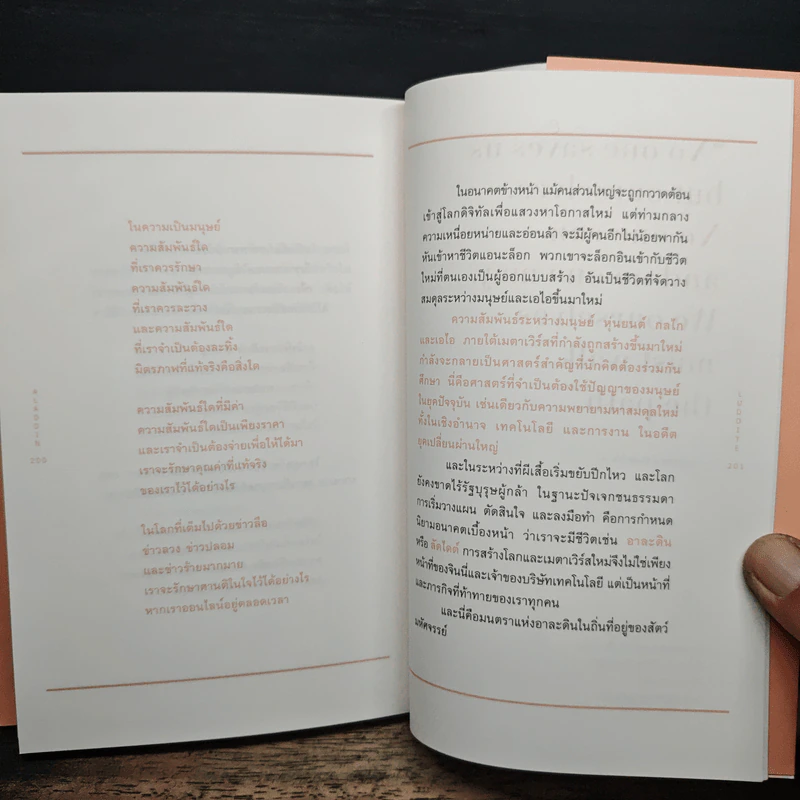 ในความเป็นมนุษย์
ความสัมพันธ์ใด
ที่เราควรรักษา
ความสัมพันธ์ใด
ที่เราควรละวาง
และความสัมพันธ์ใด
ที่เราจำเป็นต้องละทิ้ง
มิตรภาพที่แท้จริงคือสิ่งใด
ความสัมพันธ์ใดที่มีค่า
ความสัมพันธ์ใดเป็นเพียงราคา
และเราจำเป็นต้องจ่ายเพื่อให้ได้มา
เราจะรักษาคุณค่าที่แท้จริง
ของเราไว้ได้อย่างไร
ในโลกที่เต็มไปด้วยข่าวลือ
ข่าวลวง ข่าวปลอม
และข่าวร้ายมากมาย
เราจะรักษาศานติในใจไว้ได้อย่างไร
หากเราออนไลน์อยู่ตลอดเวลา
ในอนาคตข้างหน้า แม้คนส่วนใหญ่จะถูกกวาดต้อน
เข้าสู่โลกดิจิทัลเพื่อแสวงหาโอกาสใหม่ แต่ท่ามกลาง
ความเหนื่อยหน่ายและอ่อนล้า จะมีผู้คนอีกไม่น้อยพากัน
หันเข้าหาชีวิตแอนะล็อก พวกเขาจะล็อกอินเข้ากับชีวิต
ใหม่ที่ตนเองเป็นผู้ออกแบบสร้าง อันเป็นชีวิตที่จัดวาง
สมดุลระหว่างมนุษย์และเอไอขึ้นมาใหม่
ความสัมพันธ์ระหว่างมนุษย์ หุ่นยนต์ กลไก
และเอไอ ภายใต้เมตาเวิร์สที่กำลังถูกสร้างขึ้นมาใหม่
กำลังจะกลายเป็นศาสตร์สำคัญที่นักคิดต้องร่วมกัน
ศึกษา นี่คือศาสตร์ที่จำเป็นต้องใช้ปัญญาของมนุษย์
ในยุคปัจจุบัน เช่นเดียวกับความพยายามหาสมดุลใหม่
ทั้งในเชิงอำนาจ เทคโนโลยี และการงาน ในอดีต
ยุคเปลี่ยนผ่านใหญ่
และในระหว่างที่ผีเสื้อเริ่มขยับปีกไหว และโลก
ยังคงขาดไร้รัฐบุรุษผู้กล้า ในฐานะปัจเจกชนธรรมดา
การเริ่มวางแผน ตัดสินใจ และลงมือทำ คือการกำหนด
นิยามอนาคตเบื้องหน้า ว่าเราจะมีชีวิตเช่น อาละดิน
หรือ ลัดไดต์ การสร้างโลกและเมตาเวิร์สใหม่จึงไม่ใช่เพียง
หน้าที่ของจินนี่และเจ้าของบริษัทเทคโนโลยี แต่เป็นหน้าที่
และภารกิจที่ท้าทายของเราทุกคน
และนี่คือมนตราแห่งอาละดินในถิ่นที่อยู่ของสัตว์
มหัศจรรย์